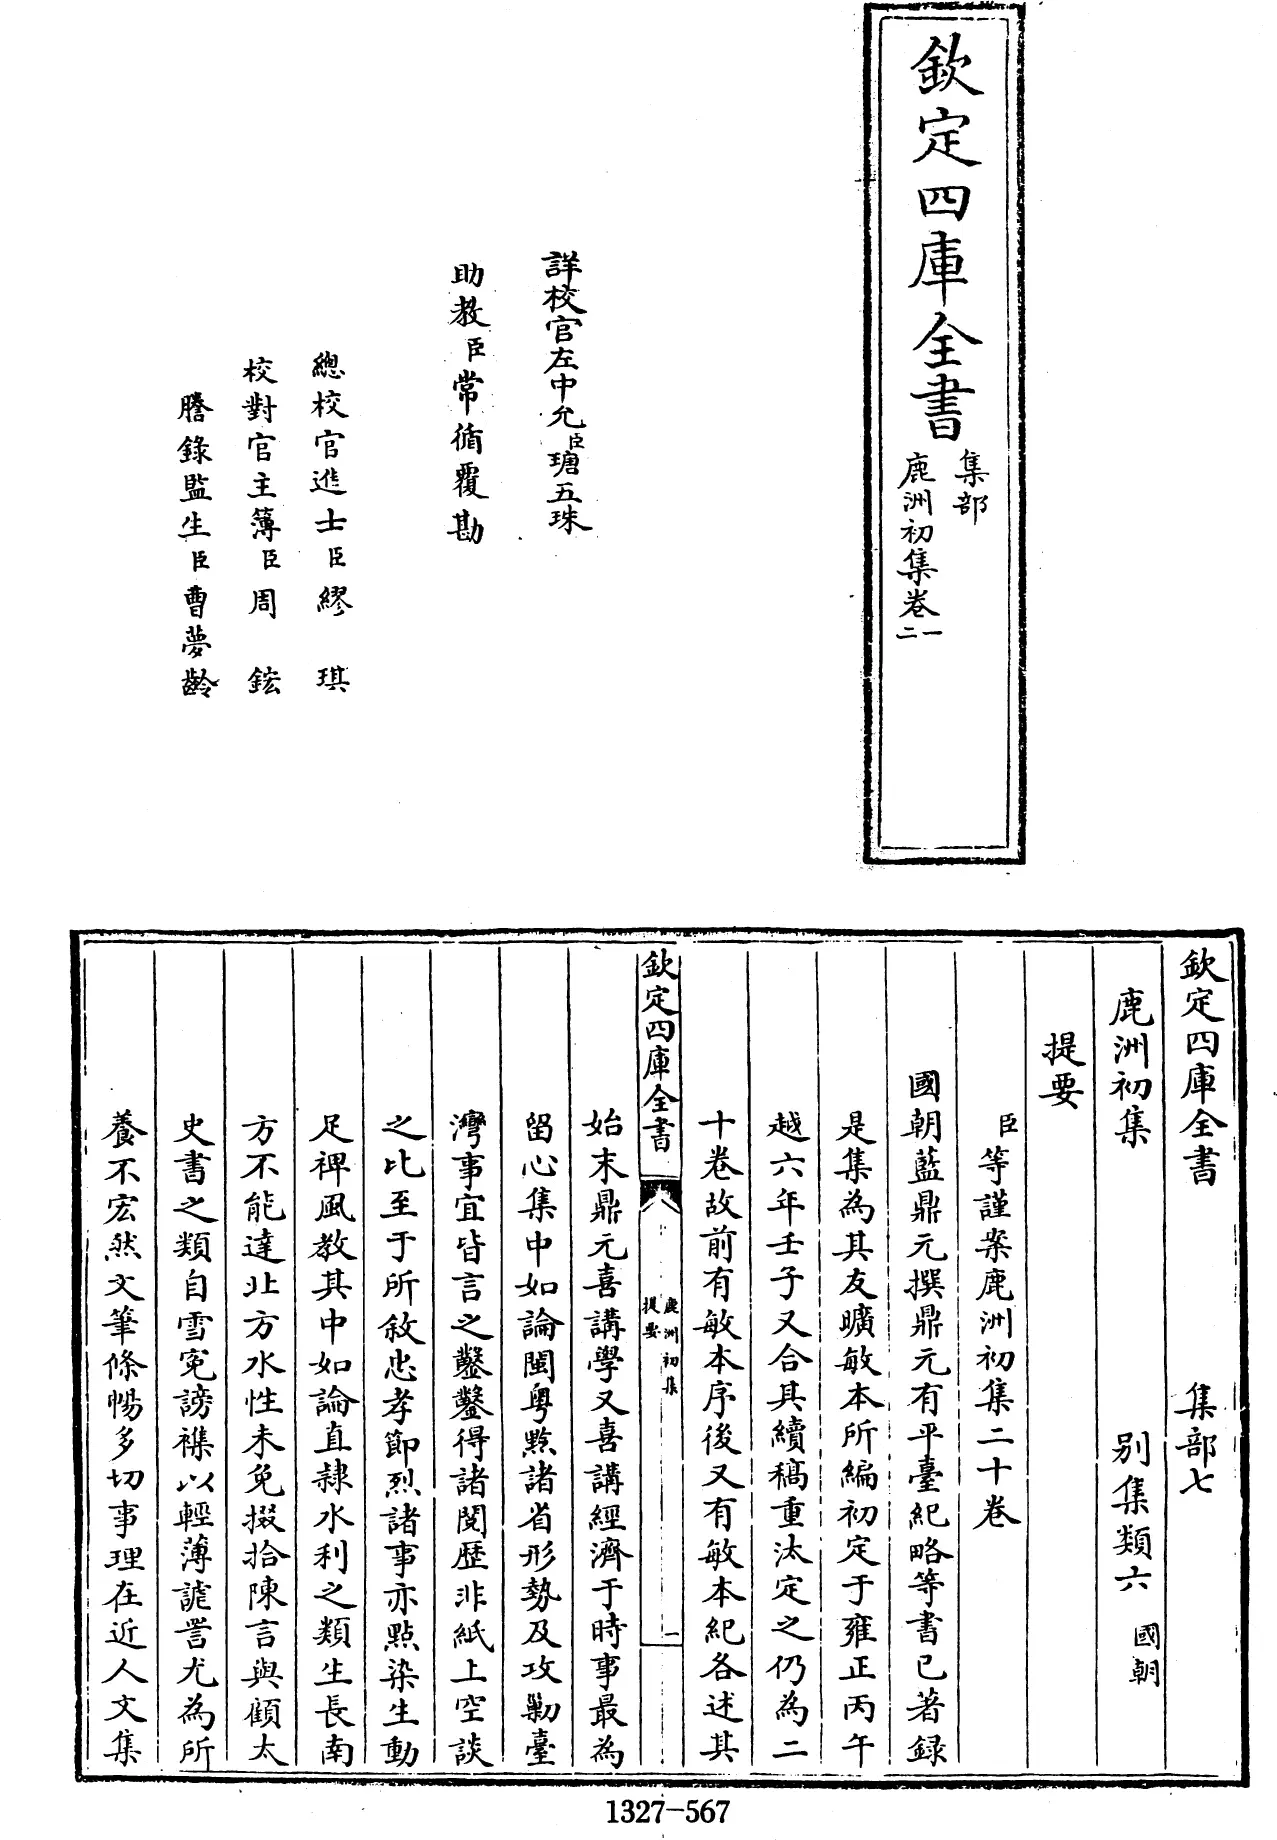 欽定四庫全書
集部
鹿洲初集卷一
二
詳校官左中允臣瑭五珠
助教臣常循覆勘
總校官進士臣繆琪
校對官主簿臣周鋐
謄錄監生臣曹夢齡
欽定四庫全書 集部七
鹿洲初集 別集類六 國朝
提要
臣等謹案鹿洲初集二十卷
國朝藍鼎元撰鼎元有平臺紀略等書已著錄
是集為其友曠敏本所編初定于雍正丙午
越六年壬子又合其續稿重汰定之仍為二
十卷故前有敏本序後又有敏本紀各述其
欽定四庫全書
鹿洲初集
提要
一
始末鼎元喜講學又喜講經濟于時事最為
留心集中如論閩粵黔諸省形勢及攻勦臺
灣事宜皆言之鑿鑿得諸閱歷非紙上空談
之比至于所敘忠孝節烈諸事亦點染生動
足裨風教其中如論直隸水利之類生長南
方不能達北方水性未免掇拾陳言與顧太
史書之類自雪寃謗襍以輕薄詆詈尤為所
養不宏然文筆條暢多切事理在近人文集
1327-567